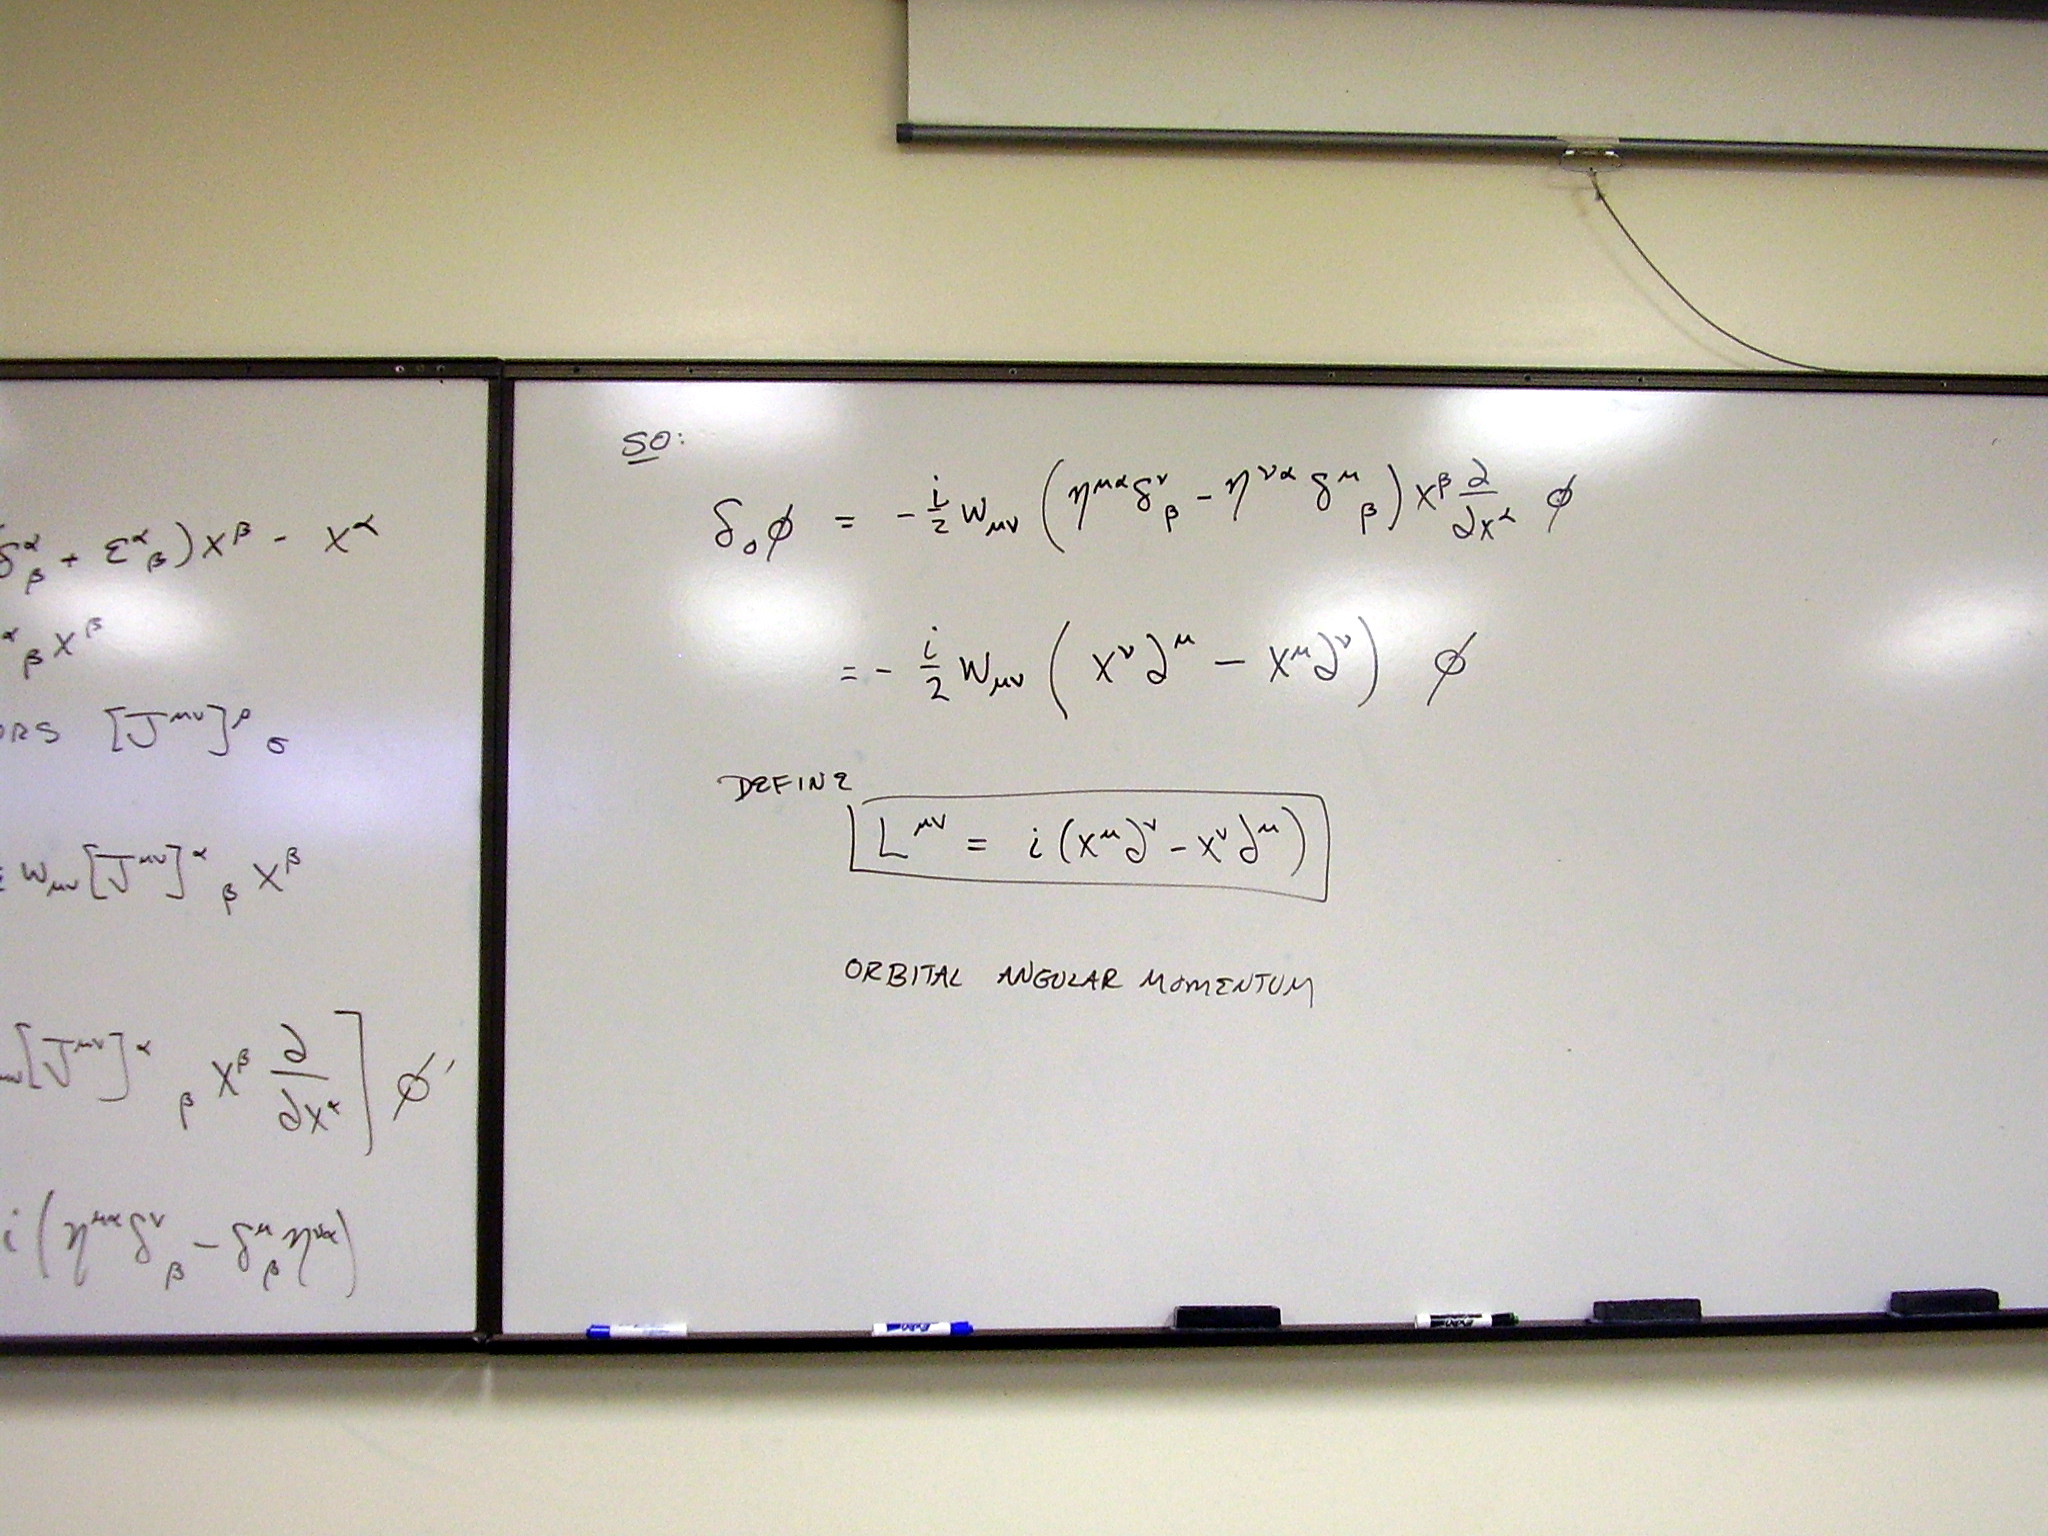 δ^α_β + ε^α_β) x^β - x^α
^α_β x^β
ORS [J^μν]^ρ_σ
ω_μν [J^μν]^α_β x^β
[J^μν]^α_β x^β ∂/∂x^α ] φ'
i (η^μα δ^ν_β - δ^μ_β η^να)
SO:
δ_0 φ = - i/2 ω_μν (η^μα δ^ν_β - η^να δ^μ_β) x^β ∂/∂x^α φ
= - i/2 ω_μν ( x^ν ∂^μ - x^μ ∂^ν ) φ
DEFINE
L^μν = i (x^μ ∂^ν - x^ν ∂^μ)
ORBITAL ANGULAR MOMENTUM